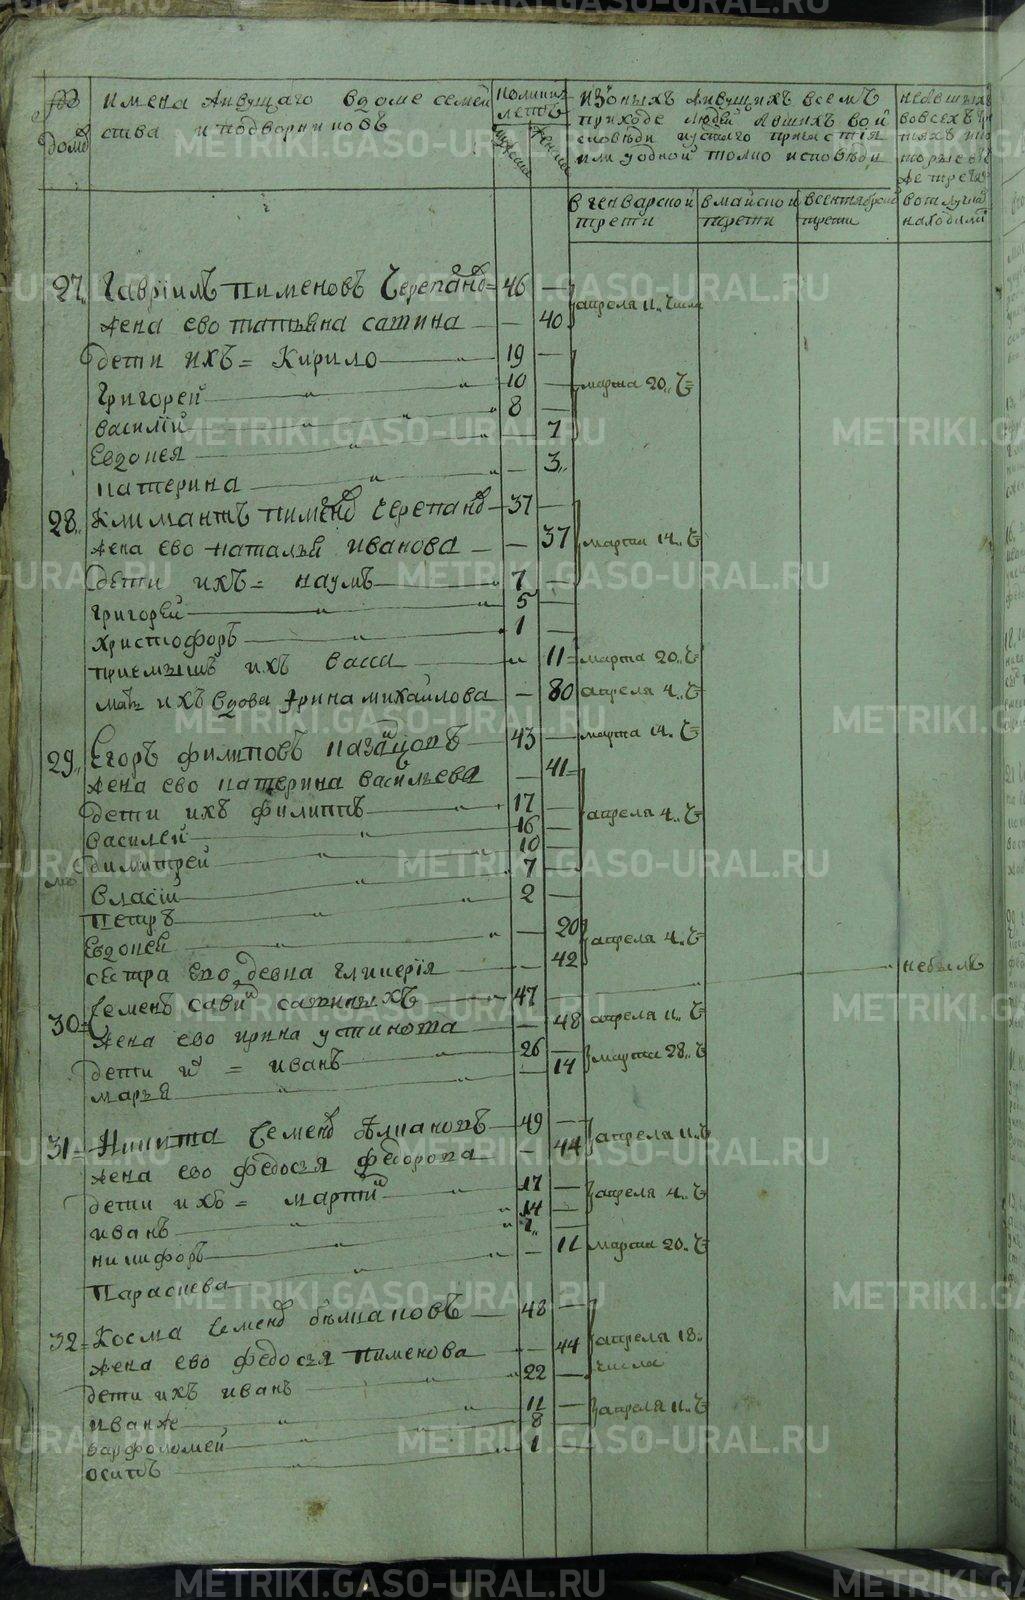 домо
имена живущаго вдоме семей
ства и подворниковъ
поликихъ
летъ
мужеска
женска
изонихъ живущихъ всемъ
приходе людей
сповѣди исвятаго причастія
или уодной толко исповѣди
вгенварской
трети
вмайской
трети
всентябрской
трети
находили
27. Гавріилъ пименовъ Черепановъ 46 —
жена ево татьяна савина — 40
апреля 11. числа
дети ихъ = Кирило 19 —
Григорей 10 —
марта 20. Ч
василий 8 —
Евдокея 7
катерина — 3.
28. Климантъ пименовъ черепановъ 37 —
жена ево наталья иванова — 37 марта 14. Ч
дети ихъ = наумъ 7 —
григорей 5 —
христофоръ 1 —
приемышъ ихъ васса 11 марта 20. Ч
мать ихъ вдова Ирина михайлова — 80 апреля 4. Ч
29. Егоръ филиповъ 43 — марта 14. Ч
жена ево катерина васильева — 41
дети ихъ филиппъ 17 — апреля 4. Ч
василей 16 —
димитрей 10 —
власій 7 —
петръ 2 —
Евдокей — 20 апреля 4. Ч
сестра ево девка гликерія — 42
небылъ
30 = Семенъ савин 47
жена ево ирина устинова — 48 апреля 11. Ч
дети их = иванъ 26 — марта 28. Ч
марья — 14
31 = Никита Семеновъ бѣлкановъ 49 —
жена ево федосья федорова — 44 апреля 11. Ч
дети ихъ = мартин 17 —
апреля 4. Ч
иванъ 14 —
никифоръ —
Параскева — 11 марта 20. Ч
32 = Косма Семеновъ бѣлкановъ 48 —
жена ево федосья пименова — 44 апреля 18.
числа
дети ихъ иванъ 22 —
иванже 11 — апреля 11. Ч
варфоломей 8
осипъ 1
METRIKI.GASO-URAL.RU